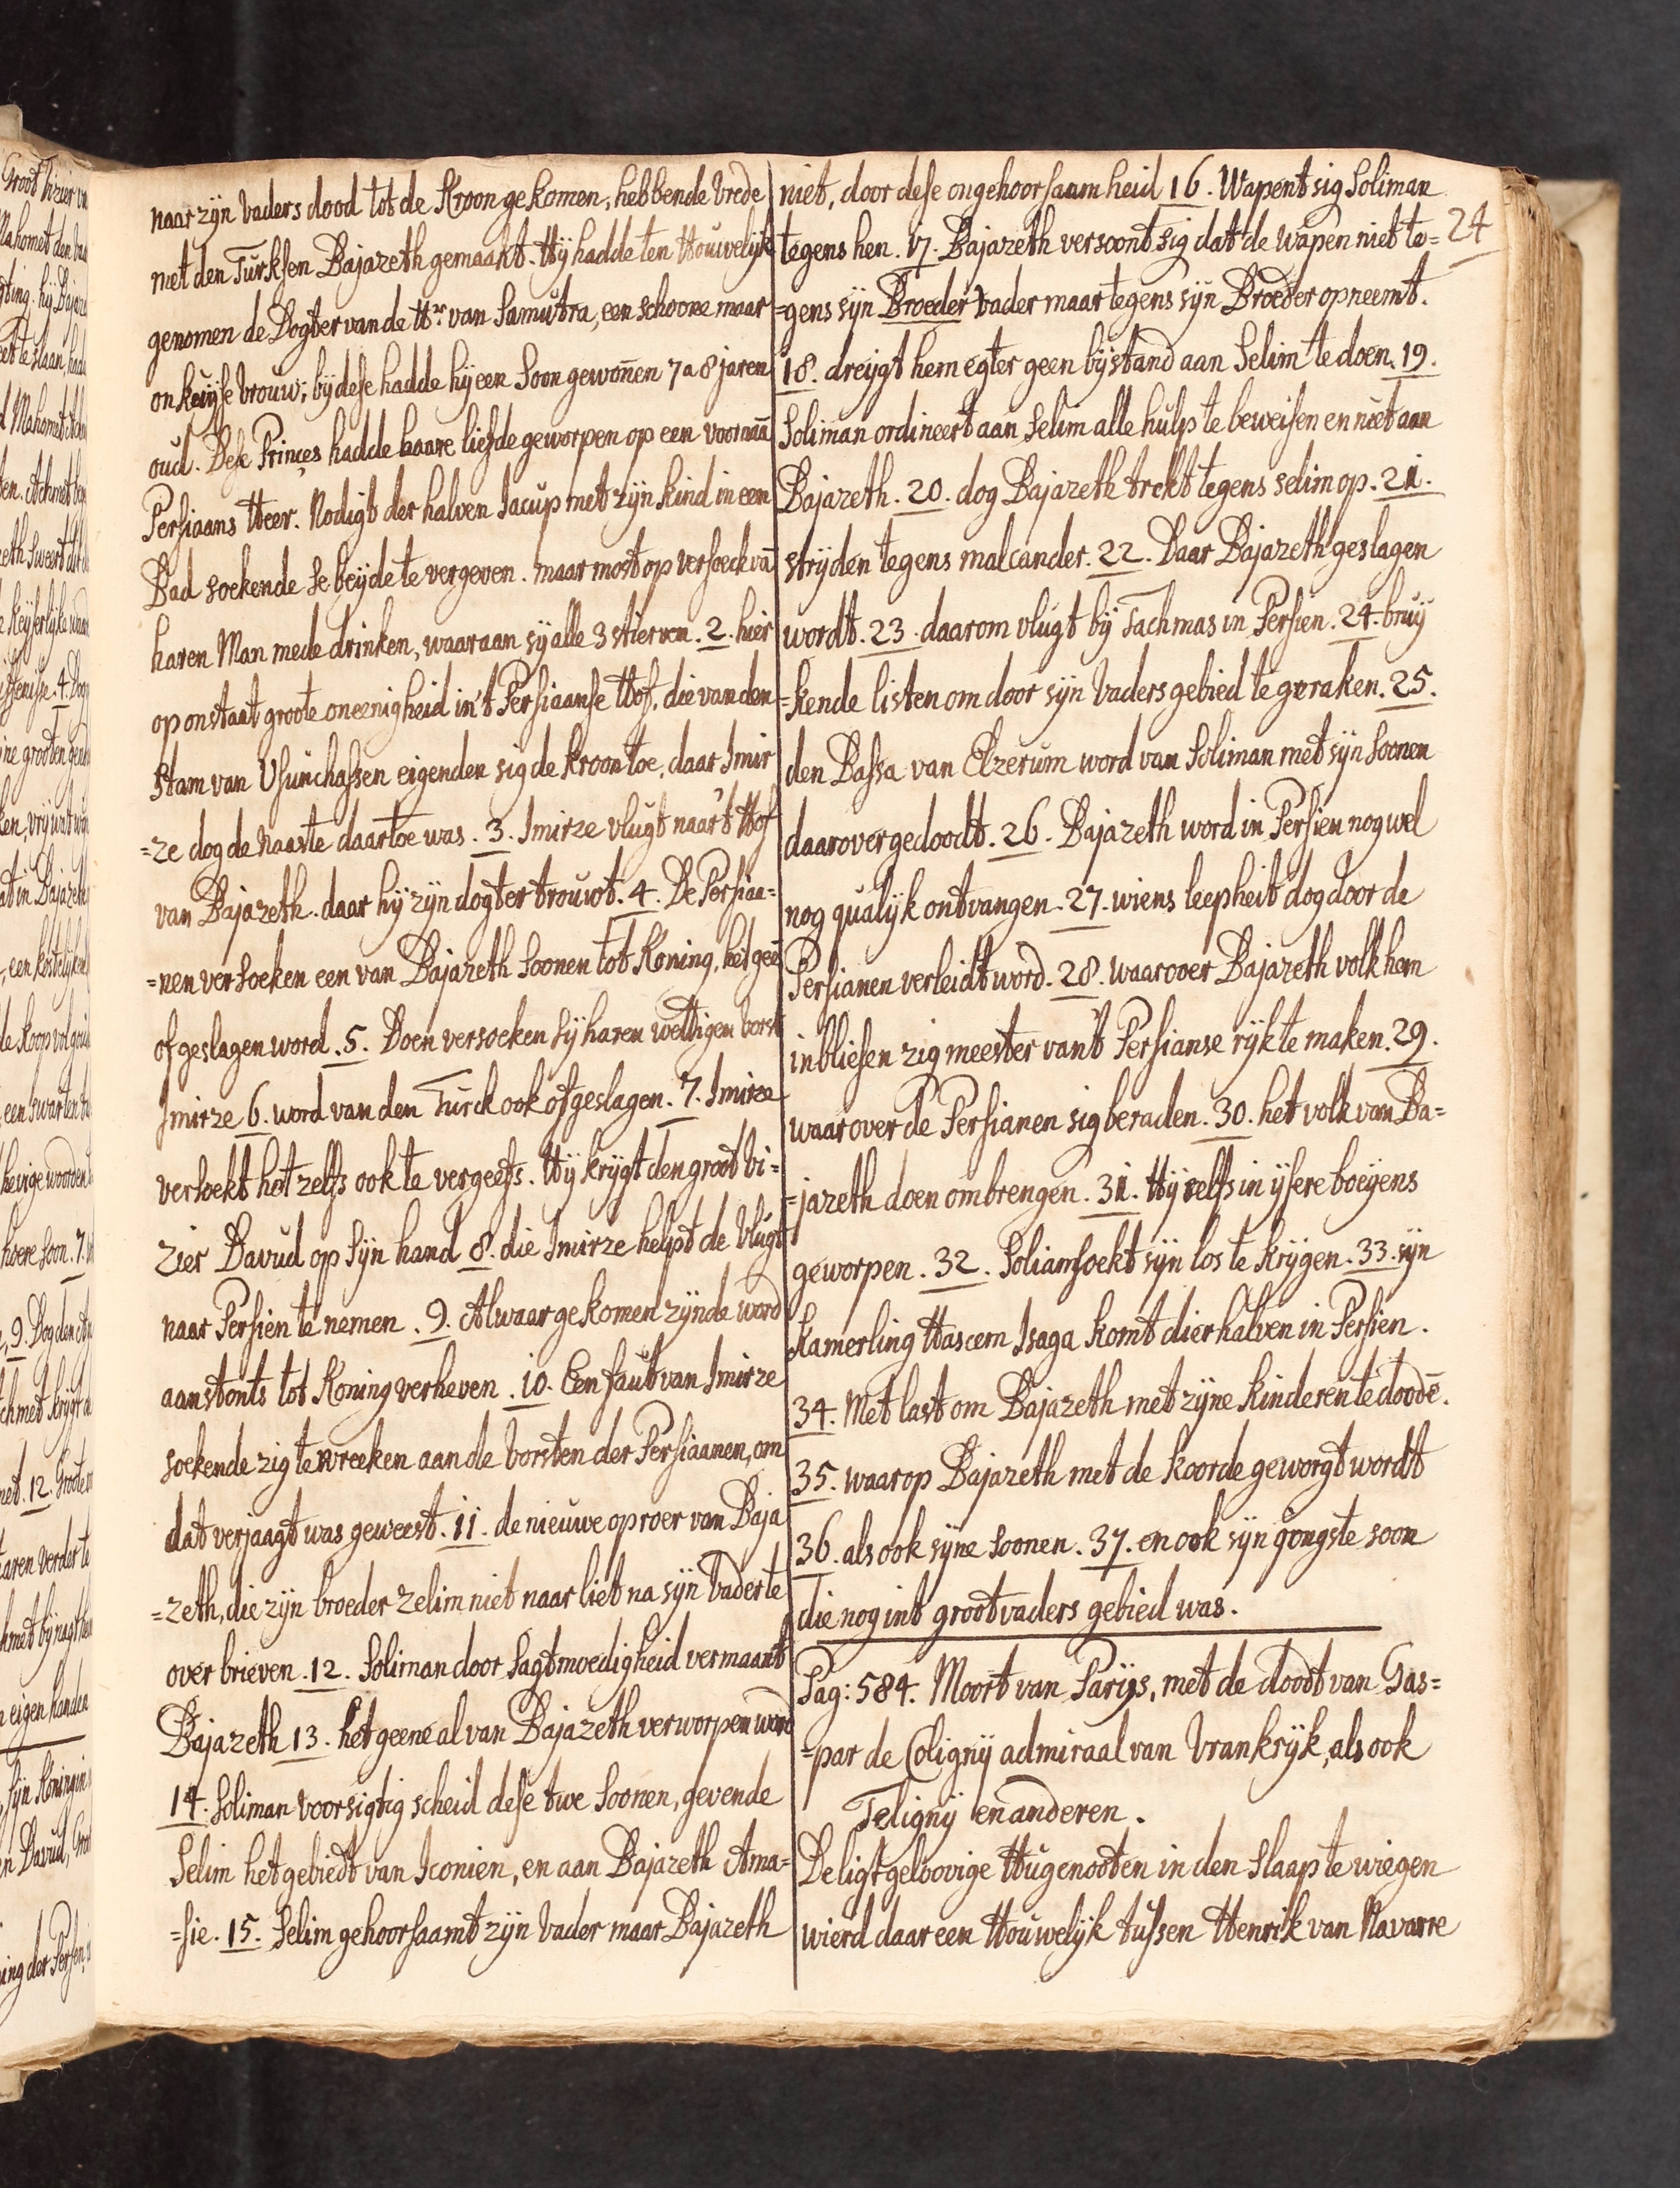 naar zyn vaders dood tot de Kroon gekomen, hebbende vrede
met den Turksen Bajazeth gemaakt. Hy hadde ten Houwelyk
genomen de Dogter van de Hr. van Samutra, een schoone maar
onkuyse vrouw; by dese hadde hy een Soon gewoñen 7 a 8 jaren
oud. Dese Princes hadde haare liefde geworpen op een voornaā
Persiaans Heer. Nodigt der halven Jacup met zyn kind in een
Bad soekende se beyde te vergeven. maar most op versoeck vā
haren Man mede drinken, waaraan sy alle 3 stierven. 2. hier
op onstaat groote oneenigheid in't Persiaanse Hof. die van den
Stam van Usunchassen eigenden sig de kroon toe, daar Imir
=ze dog de naaste daartoe was. 3. Imirze vlugt naar't Hof
van Bajazeth. daar hy zyn dogter trouwt. 4. De Persiaa=
=nen versoeken een van Bajazeth Soonen tot Koning, het geē
of geslagen word. 5. Doen versoeken sy haren wettigen vorst
Imirze 6. word van den Turck ook ofgeslagen. 7. Imirze
versoekt het zelfs ook te vergeefs. Hy krygt den groot Vi=
zier Davud op syn hand 8. die Imirze helpt de vlugt
naar Persien te nemen. 9. Alwaar gekomen zynde word
aanstonts tot Koning verheven. 10. Een faut van Imirze
soekende zig te wreeken aan de vorsten der Persiaanen, om
dat verjaagt was geweest. 11. de nieuwe oproer van Baja
=zeth, die zyn broeder Zelim niet naar liet na syn vader te
over brieven. 12. Soliman door sagtmoedigheid vermaant
Bajazeth 13. het geene al van Bajazeth verworpen word
14. Soliman voorsigtig scheid dese twe Soonen, gevende
Selim het gebiedt van Iconien, en aan Bajazeth Ama=
=sie. 15. Selim gehoorsaamt zyn vader maar Bajazeth
niet, door dese ongehoorsaamheid 16. Wapent sig Soliman
tegens hen. 17. Bajazeth versoont sig dat de wapen niet te=
24
=gens syn Broeder vader maar tegens syn Broeder opneemt.
18. dreygt hem egter geen bystand aan Selim te doen. 19.
Soliman ordineert aan Selim alle hulp te beweisen en niet aan
Bajazeth. 20. dog Bajazeth trekt tegens selim op. 21.
stryden tegens malcander. 22. Daar Bajazeth geslagen
wordt. 23. daarom vlugt by Tachmas in Persien. 24. bruy
=kende listen om door syn vaders gebied te geraken. 25.
den Bassa van Elzerum word van Soliman met syn Soonen
daarover gedoodt. 26. Bajazeth word in Persien nog wel
nog qualyk ontvangen. 27. wiens leepheit dog door de
Persianen verleidt word. 28. waarover Bajazeth volk hem
inbliesen zig meester vant Persianse ryk te maken. 29.
waarover de Persianen sig beraden. 30. het volk van Ba=
=jazeth doen ombrengen. 31. Hy selfs in ysere boeyens
geworpen. 32. Soliam soekt syn los te krygen. 33. syn
Kamerling Hascem Isaga komt dierhalven in Persien.
34. Met last om Bajazeth met zyne kinderen te doodē.
35. waarop Bajazeth met de koorde geworgt wordt
36. als ook syne soonen. 37. en ook syn jongste soon
die nog int grootvaders gebied was.
Pag: 584. Moort van Parys, met de doodt van Gas=
=par de Coligny admiraal van Vrankryk, als ook
Teligny en anderen.
De ligtgeloovige Hugenooten in den slaap te wiegen
wierd daar een Houwelyk tussen Henrik van Navarre